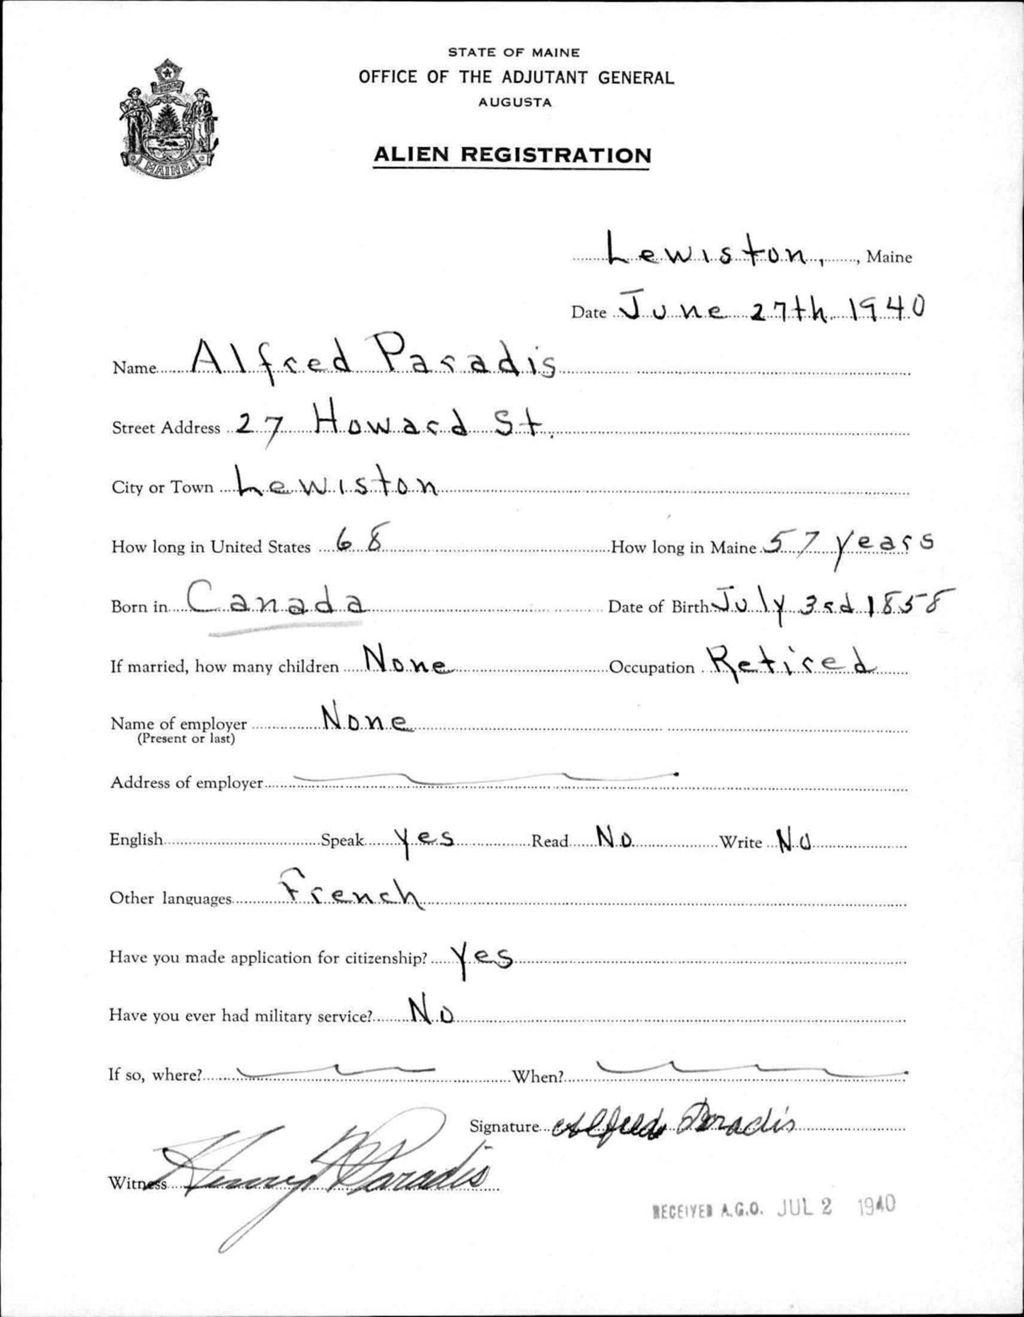 STATE OF MAINE
OFFICE OF THE ADJUTANT GENERAL
AUGUSTA
ALIEN REGISTRATION
MAINE
Lewiston, , Maine
Date June 27th, 1940
Name Alfred Paradis
Street Address 27 Howard St.
City or Town Lewiston
How long in United States 68 How long in Maine 57 years
Born in Canada Date of Birth July 3rd 1858
If married, how many children None Occupation Retired
Name of employer None
(Present or last)
Address of employer
English Speak yes Read No Write No
Other languages French
Have you made application for citizenship? Yes
Have you ever had military service? No
If so, where? When?
Signature Alfred Paradis
Witness Henry Paradis
RECEIVED A.G.O. JUL 2 1940